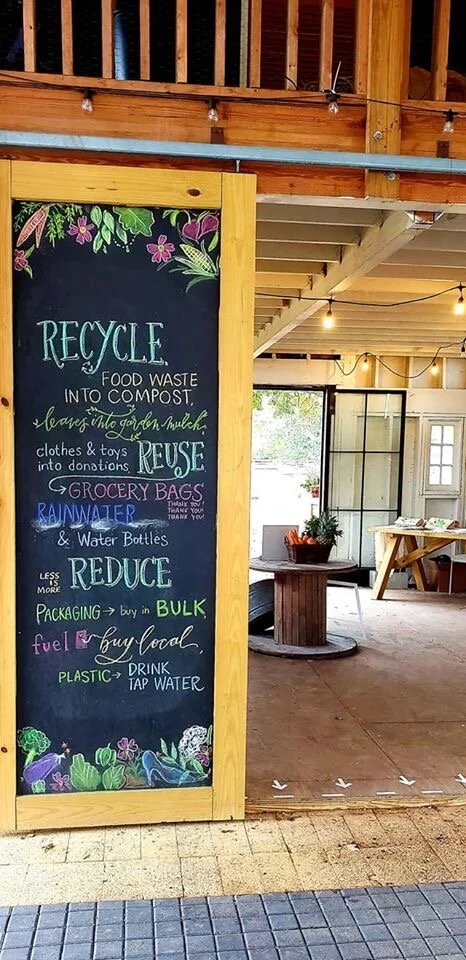 RECYCLE
FOOD WASTE
INTO COMPOST,
leaves into garden mulch,
clothes & toys
into donations. REUSE
→ GROCERY BAGS
THANK YOU!
THANK YOU!
THANK YOU!
RAINWATER
& Water Bottles
LESS
IS
MORE
REDUCE
PACKAGING → buy in BULK
fuel buy local,
PLASTIC → DRINK
TAP WATER